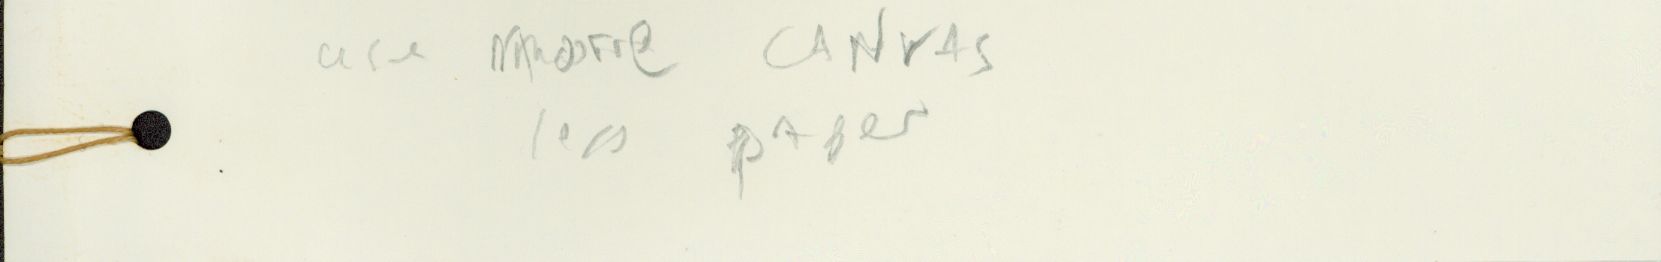 use more CANVAS
less paper